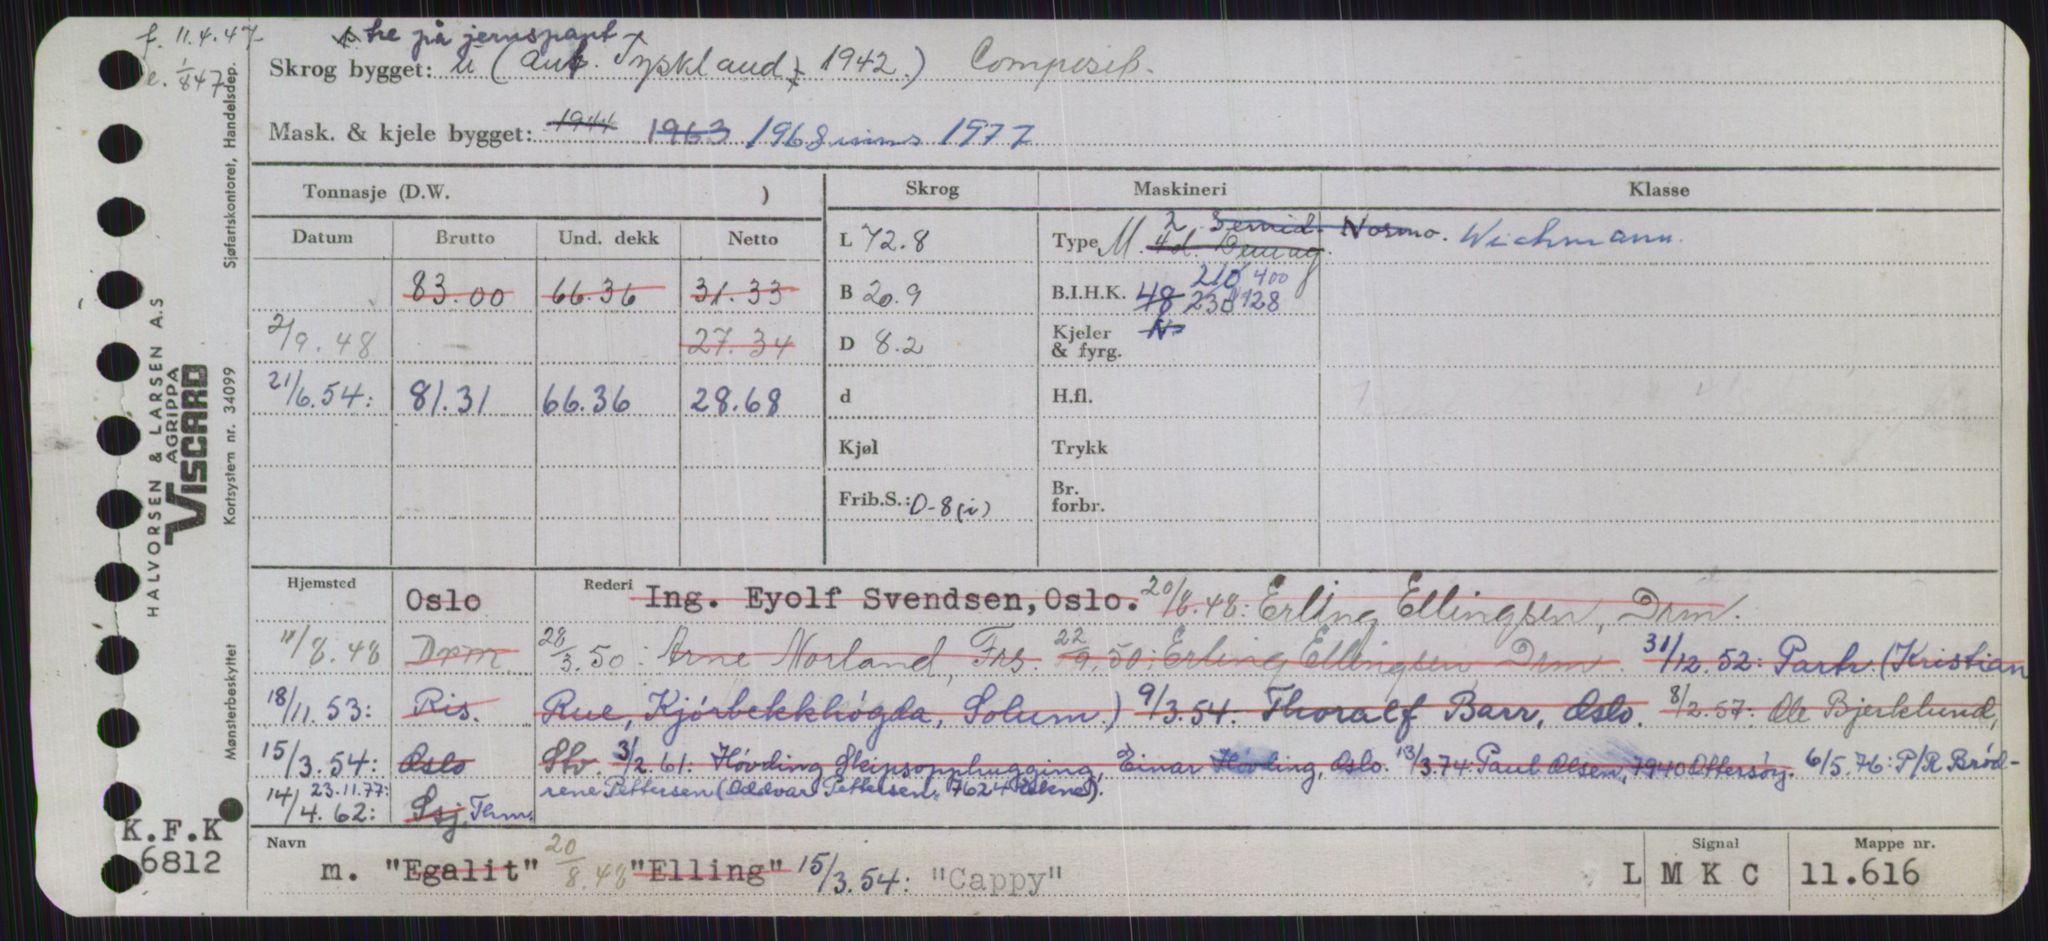 f. 11.4.47 tre på jernspant
e. 1/8 47 Skrog bygget: i (ant. Tyskland, 1942.) Composit.
Mask. & kjele bygget: 1944 1963 1968 inns 1977
Tonnasje (D.W. ) Skrog Maskineri Klasse
Datum Brutto Und. dekk Netto L 72.8 Type M. 2 Semid. Normo. Wichmann.
4d. Demag.
83.00 66.36 31.33 B 20.9 B.I.H.K. 48 210 400
230 428
2/9.48 27.34 D 8.2 Kjeler & fyrg. N
21/6.54: 81.31 66.36 28.68 d H.fl.
Kjøl Trykk
Frib.S.: D-8(i) Br. forbr.
Hjemsted Oslo Rederi Ing. Eyolf Svendsen, Oslo. 20/8.48: Erling Ellingsen, Drm.
11/8.48 Drm 28/3.50: Arne Norland, Frs. 22/9.50: Erling Ellingsen, Drm. 31/12.52: Partr. (Kristian
18/11.53: Ris. Rue, Kjörbekkhögda, Solum.) 9/3.54. Thoralf Barr, Oslo. 8/2.57: Ole Bjerklund,
15/3.54: Oslo Slv. 3/2.61: Hövding Skipsopphugging, Einar Hövding, Oslo. 13/3.74 Paul Olsen, 7940 Ottersøy. 6/5.76: P/R Bröd-
14/4.62: Ssj. 23.11.77: Thm. rene Pettersen (Oddvar Pettersen, 7624
Navn m. "Egalit" 20/8.48 "Elling" 15/3.54: "Cappy" Signal L M K C Mappe nr. 11.616
K.F.K
6812
HALVORSEN & LARSEN A.S
AGRIPPA
VISCARD
Mønsterbeskyttet Kortsystem nr. 34099 Sjøfartskontoret, Handelsdep.